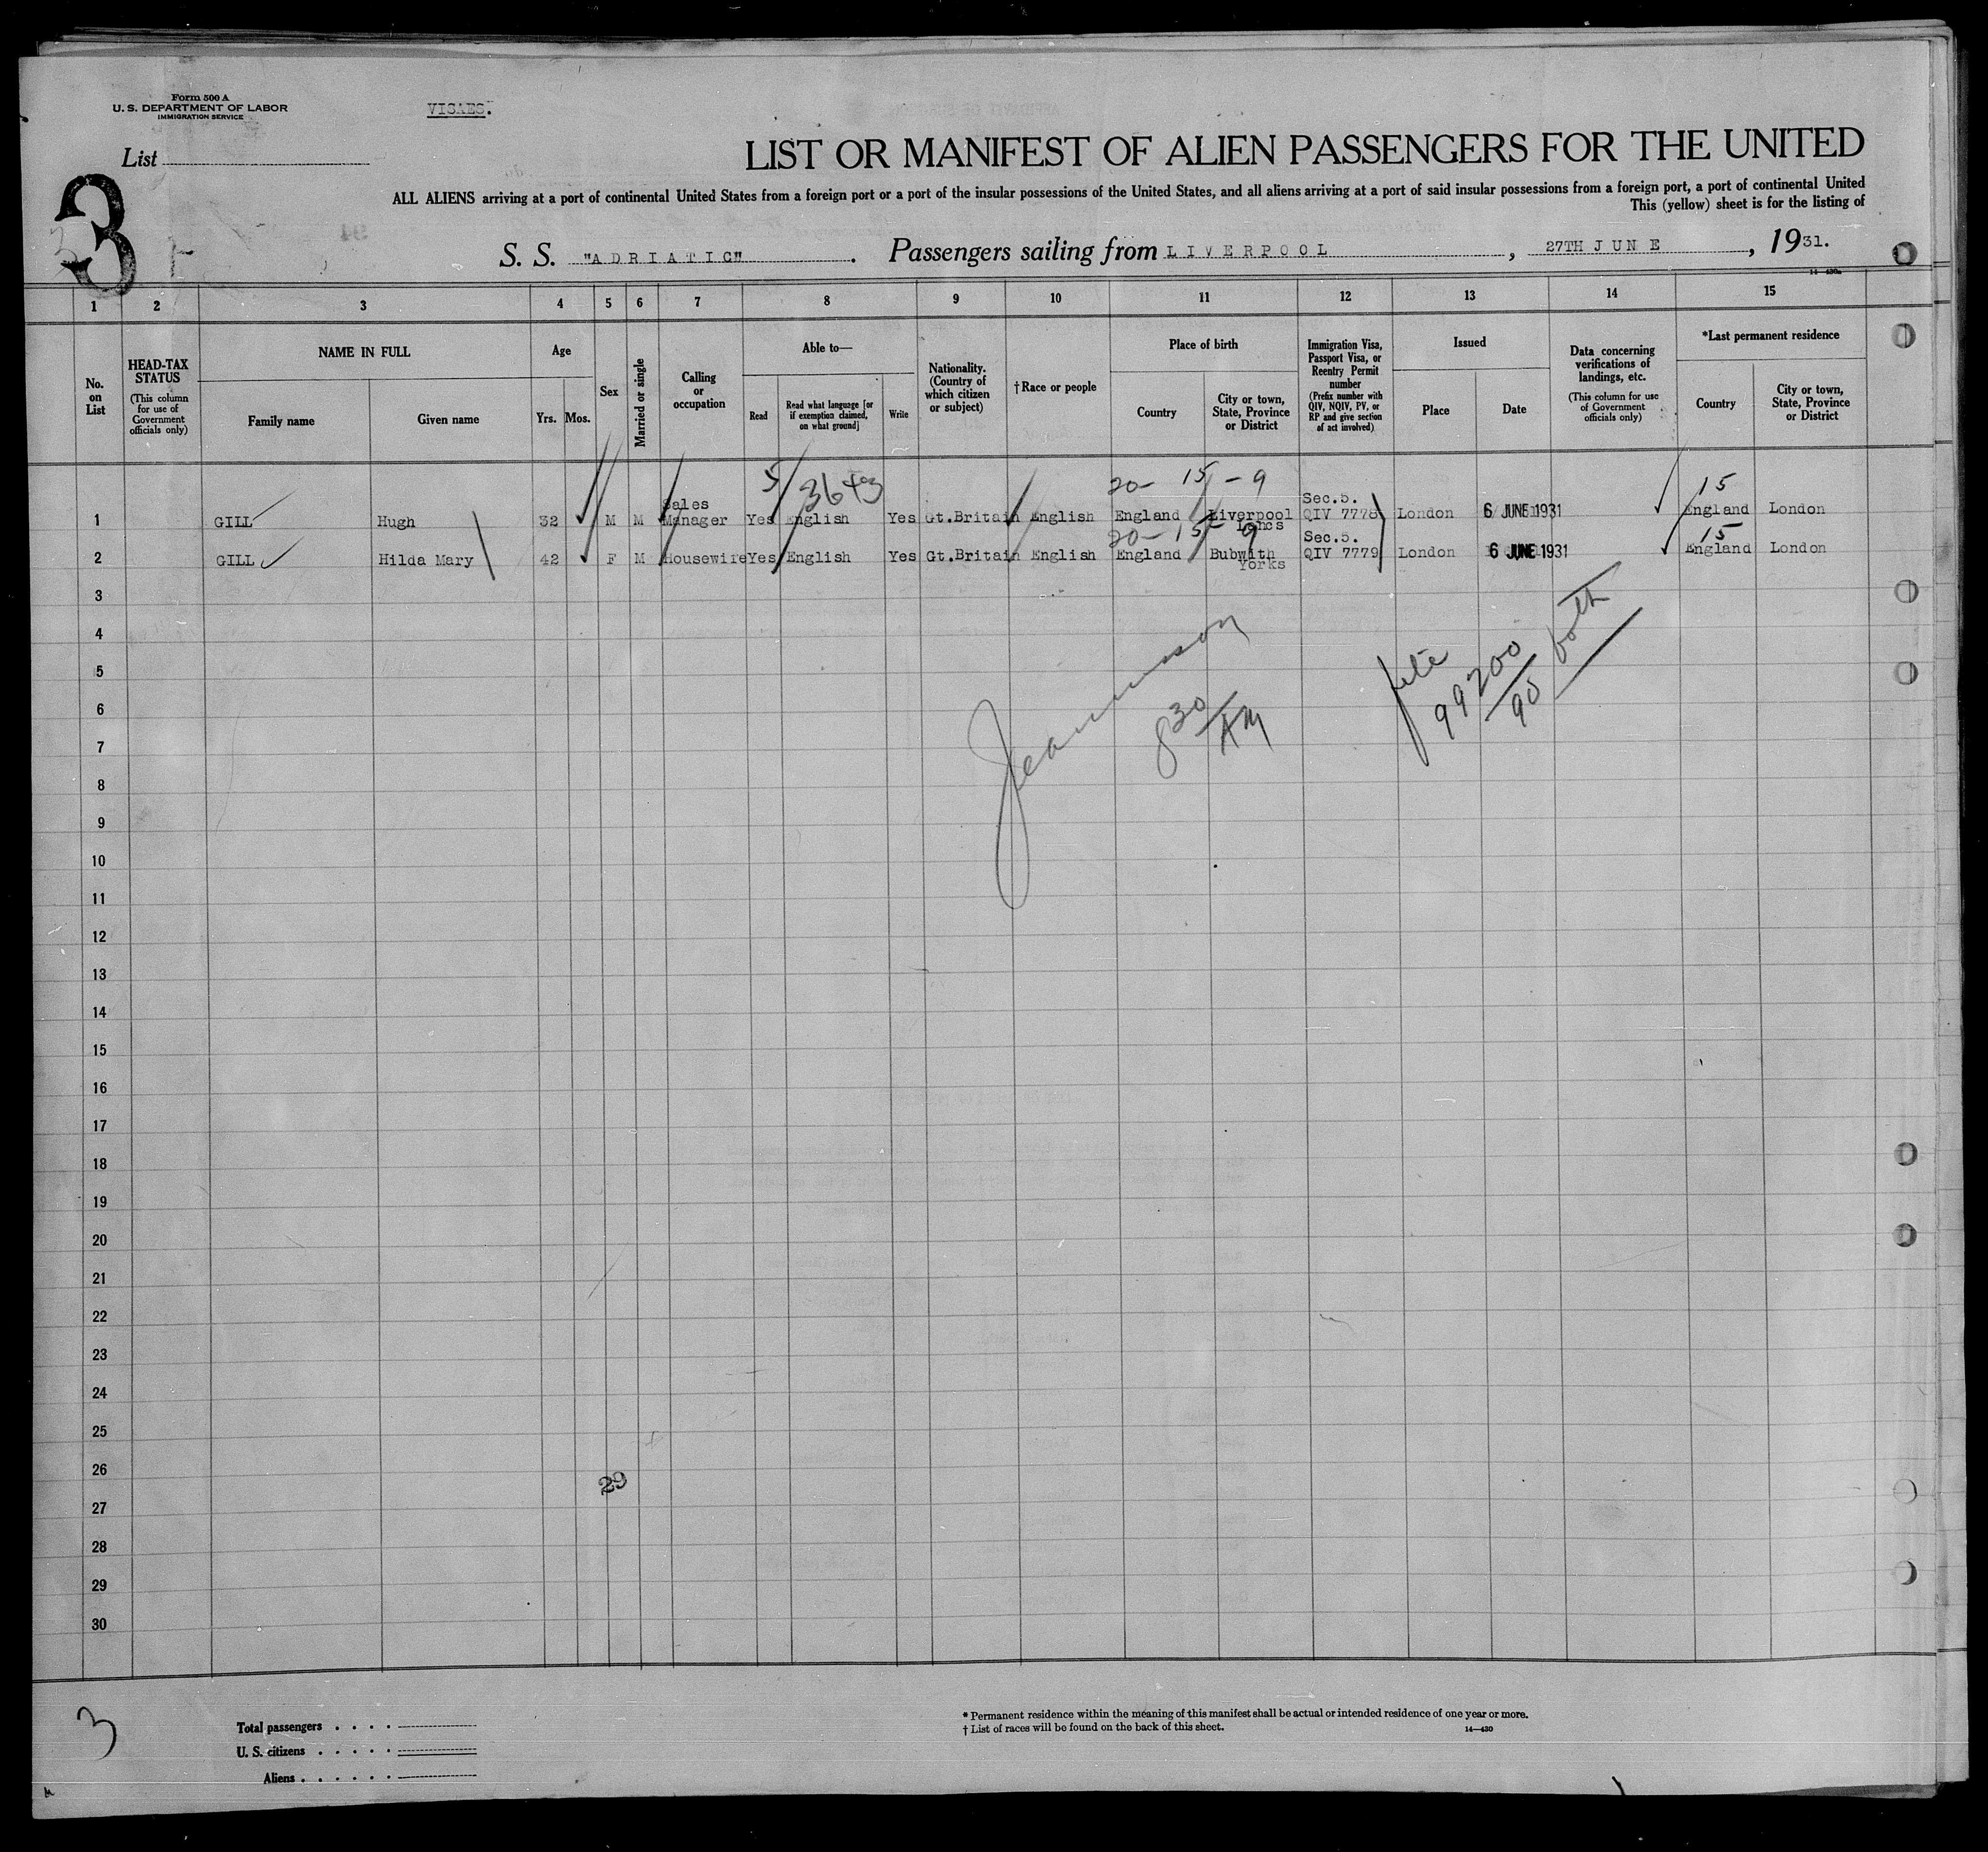 Form 500 A
U. S. DEPARTMENT OF LABOR
IMMIGRATION SERVICE
VISAES.
List
3
LIST OR MANIFEST OF ALIEN PASSENGERS FOR THE UNITED
ALL ALIENS arriving at a port of continental United States from a foreign port or a port of the insular possessions of the United States, and all aliens arriving at a port of said insular possessions from a foreign port, a port of continental United
This (yellow) sheet is for the listing of
S. S. "ADRIATIC". Passengers sailing from LIVERPOOL, 27TH JUNE, 1931.
14—430a
1 2 3 4 5 6 7 8 9 10 11 12 13 14 15
No. on List
HEAD-TAX STATUS
(This column for use of Government officials only)
NAME IN FULL
Family name
Given name
Age
Yrs. Mos.
Sex
Married or single
Calling or occupation
Able to—
Read
Read what language [or if exemption claimed, on what ground]
Write
Nationality. (Country of which citizen or subject)
†Race or people
Place of birth
Country
City or town, State, Province or District
Immigration Visa, Passport Visa, or Reentry Permit number
(Prefix number with QIV, NQIV, PV, or RP and give section of act involved)
Issued
Place
Date
Data concerning verifications of landings, etc.
(This column for use of Government officials only)
*Last permanent residence
Country
City or town, State, Province or District
5 3643 20- 15 - 9 15
1 GILL Hugh 32 M M Sales Manager Yes English Yes Gt.Britain English England Liverpool Lancs Sec.5. QIV 7778 London 6 JUNE 1931 England London
20-15- 9 15
2 GILL Hilda Mary 42 F M Housewife Yes English Yes Gt.Britain English England Bubwith Yorks Sec.5. QIV 7779 London 6 JUNE 1931 England London
3
4
5
6
7
8
9
10
11
12
13
14
15
16
17
18
19
20
21
22
23
24
25
26
27
28
29
30
830 AM
99200
90
both
29
3
Total passengers
U. S. citizens
Aliens
* Permanent residence within the meaning of this manifest shall be actual or intended residence of one year or more.
† List of races will be found on the back of this sheet.
14—430